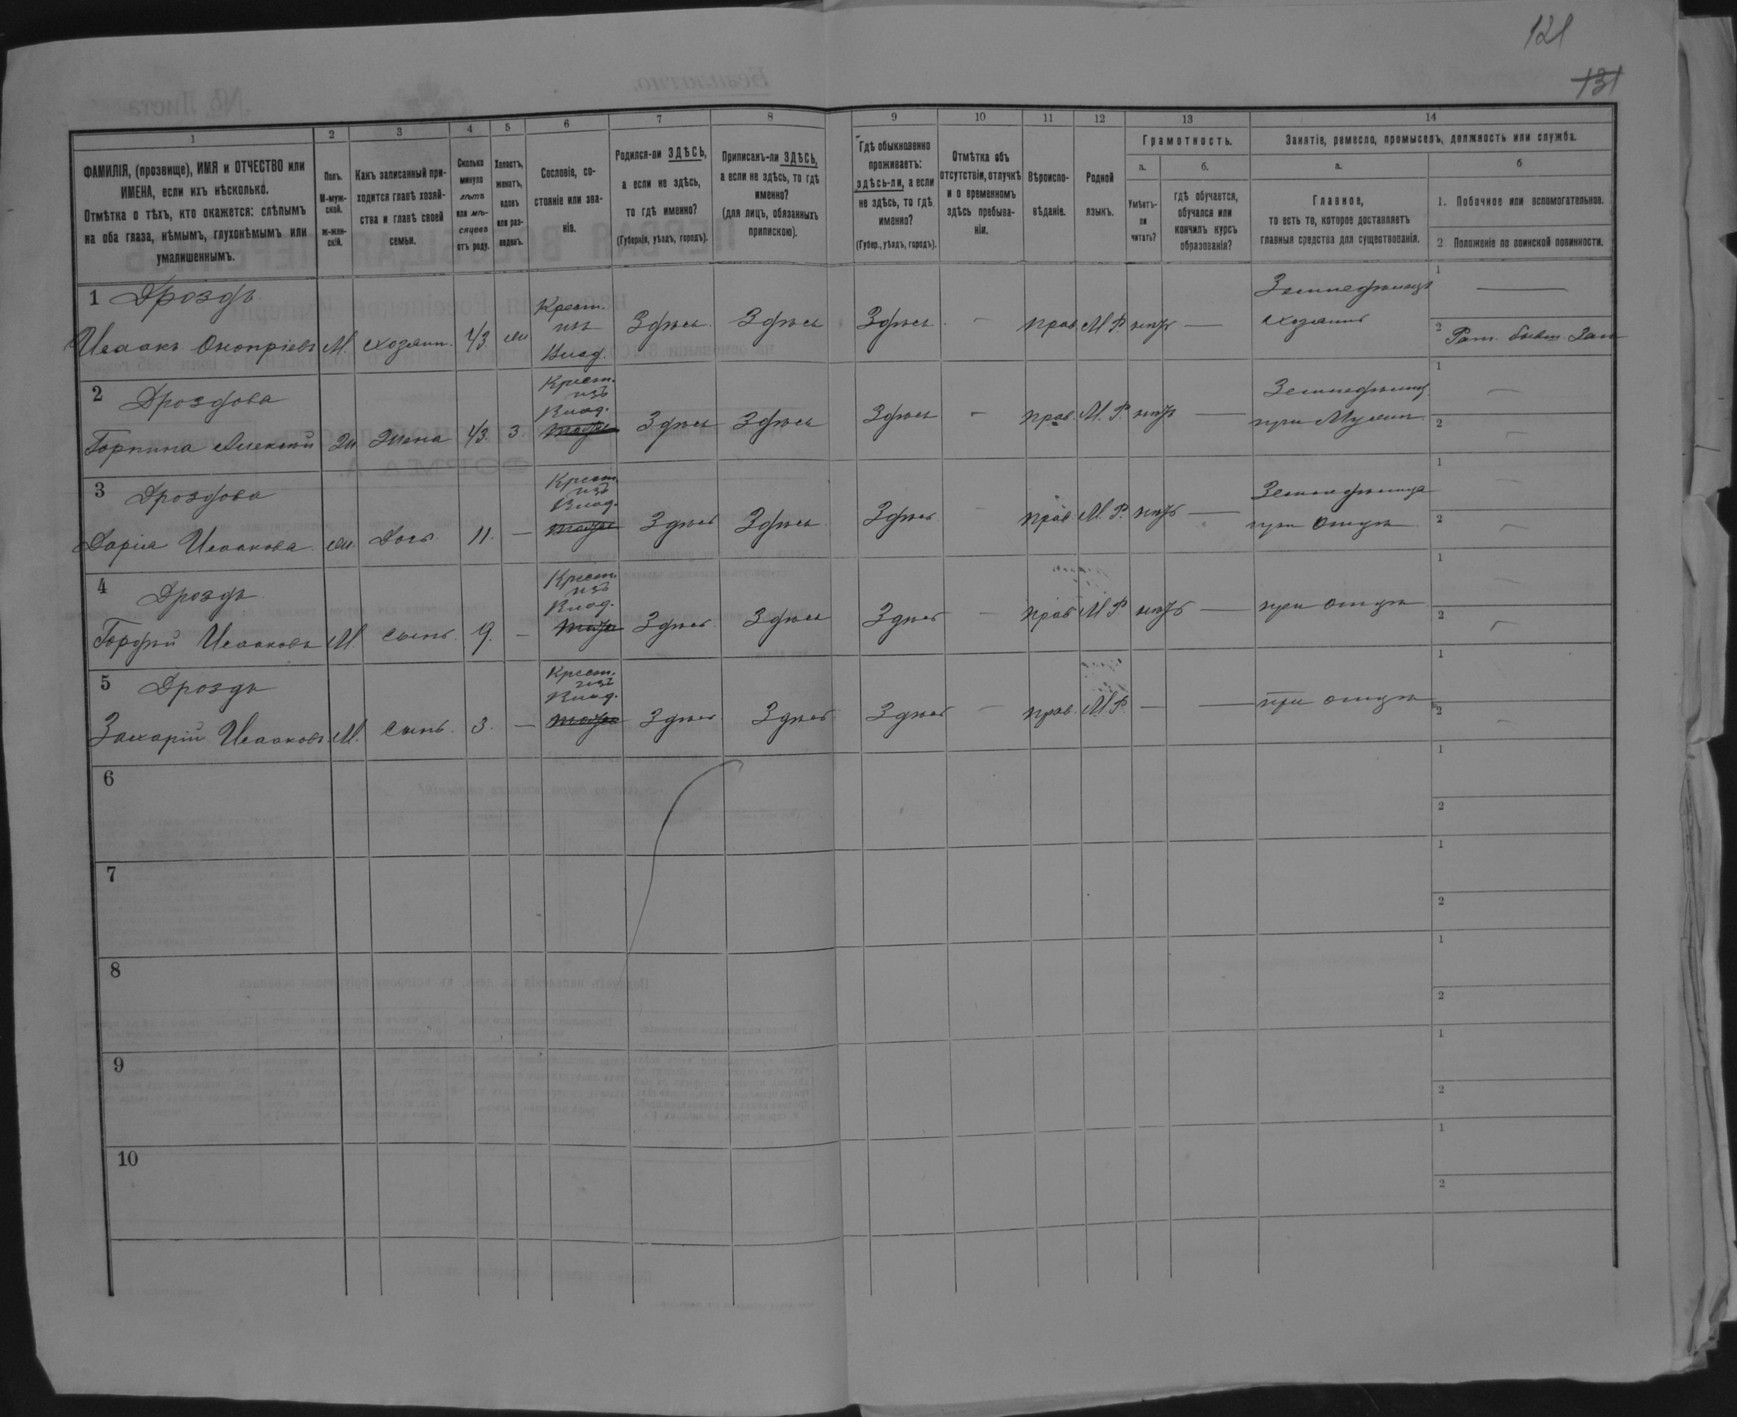 121
131
1 2 3 4 5 6 7 8 9 10 11 12 13 14
ФАМИЛІЯ, (прозвище), ИМЯ и ОТЧЕСТВО или
ИМЕНА, если ихъ нѣсколько.
Отмѣтка о тѣхъ, кто окажется: слѣпымъ
на оба глаза, нѣмымъ, глухонѣмымъ или
умалишеннымъ.
Полъ.
М-муж-
ской.
ж-жен-
скій.
Какъ записанный при-
ходится главѣ хозяй-
ства и главѣ своей
семьи.
Сколько
минуло
лѣтъ
или мѣ-
сяцевъ
отъ роду.
Холостъ,
женатъ,
вдовъ
или раз-
веденъ.
Сословіе, со-
стояніе или зва-
ніе.
Родился-ли ЗДѢСЬ,
а если не здѣсь,
то гдѣ именно?
(Губернія, уѣздъ, городъ).
Приписанъ-ли ЗДѢСЬ,
а если не здѣсь, то гдѣ
именно?
(для лицъ, обязанныхъ
припискою).
Гдѣ обыкновенно
проживаетъ:
здѣсь-ли, а если
не здѣсь, то гдѣ
именно?
(Губер., уѣздъ, городъ).
Отмѣтка объ
отсутствіи, отлучкѣ
и о временномъ
здѣсь пребыва-
ніи.
Вѣроиспо-
вѣданіе.
Родной
языкъ.
Грамотность.
а.
Умѣетъ-
ли
читать?
б.
гдѣ обучается,
обучался или
кончилъ курсъ
образованія?
Занятіе, ремесло, промыселъ, должность или служба.
а.
Главное,
то есть то, которое доставляетъ
главныя средства для существованія.
б
1. Побочное или вспомогательное.
2 Положеніе по воинской повинности.
1 Дроздъ
Исаакъ Оноприевъ М. хозяин. 43. Крест. изъ Влад. Здѣсь Здѣсь Здѣсь — прав М.Р. нѣтъ —
Земледѣлецъ
хозяинъ
1 —
2
2 Дроздова
Горпина Ж Жена 43. З Крест. изъ Влад. Здѣсь Здѣсь Здѣсь — прав. М.Р. нѣтъ —
при Мужѣ
1 —
2 —
3 Дроздова
Дарія Исаакова ж. Дочь 11. — Крест. изъ Влад. Здѣсь Здѣсь Здѣсь — прав М.Р. нѣтъ —
при отцѣ
1 —
2 —
4 Дроздъ
Гордѣй Исааковъ М. сынъ. 9. — Крест. изъ Влад. Здѣсь Здѣсь Здѣсь — прав М.Р. нѣтъ — при отцѣ
1 —
2 —
5 Дроздъ
Захарій Исааковъ М. сынъ. 3. — Крест. изъ Влад. Здѣсь Здѣсь Здѣсь — прав. М.Р. — — при отцѣ
1
2 —
6
1
2
7
1
2
8
1
2
9
1
2
10
1
2